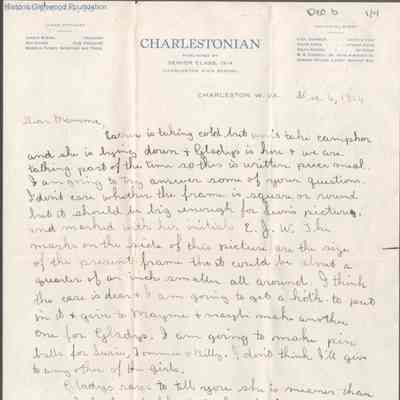 Historic Glenwood Foundation
Dec 6 1/4
CHARLESTONIAN
PUBLISHED BY
SENIOR CLASS, 1914
CHARLESTON HIGH SCHOOL
CHARLESTON, W. VA. Dec. 6, 1914
Dear Mamma,
is taking cold but won't take camphor
and she is lying down & Gladys is here & we are
talking part of the time so this is written piece meal.
I am going to try answer some of your questions.
I don't care whether the frame is square or round
but it should be big enough for picture
and marked with his initials E. J. W. The
marks on the side of this picture are the size
of the present frame tho it could be about a
quarter of an inch smaller all around. I think
the case is dear & I am going to get a to put
in it & give to Mayme & maybe make another
one for Gladys. I am going to make pin
balls for Susie, & Billy. I don't think I'll give
to any other of the girls.
Gladys says to tell you she is meaner than